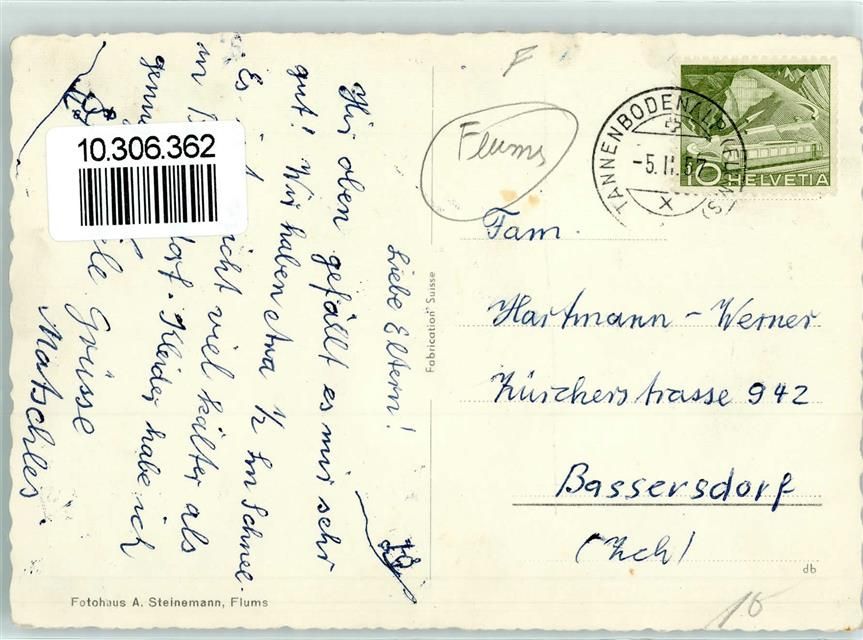 Liebe Eltern!
Hir oben gefällt es mir sehr
gut! Wir haben etwa 1/2 Lm Schnee.
Es ist nicht viel kälter als
in
genug Kleider habe ich
Viele Grüsse
Matschles.
10.306.362
Fabrication Suisse
F
Flums
TANNENBODENALP (FLUMS)
-5.II.57
10 HELVETIA
Fam.
Hartmann - Werner
Zürcherstrasse 942
Bassersdorf
(Zch)
db
Fotohaus A. Steinemann, Flums
10